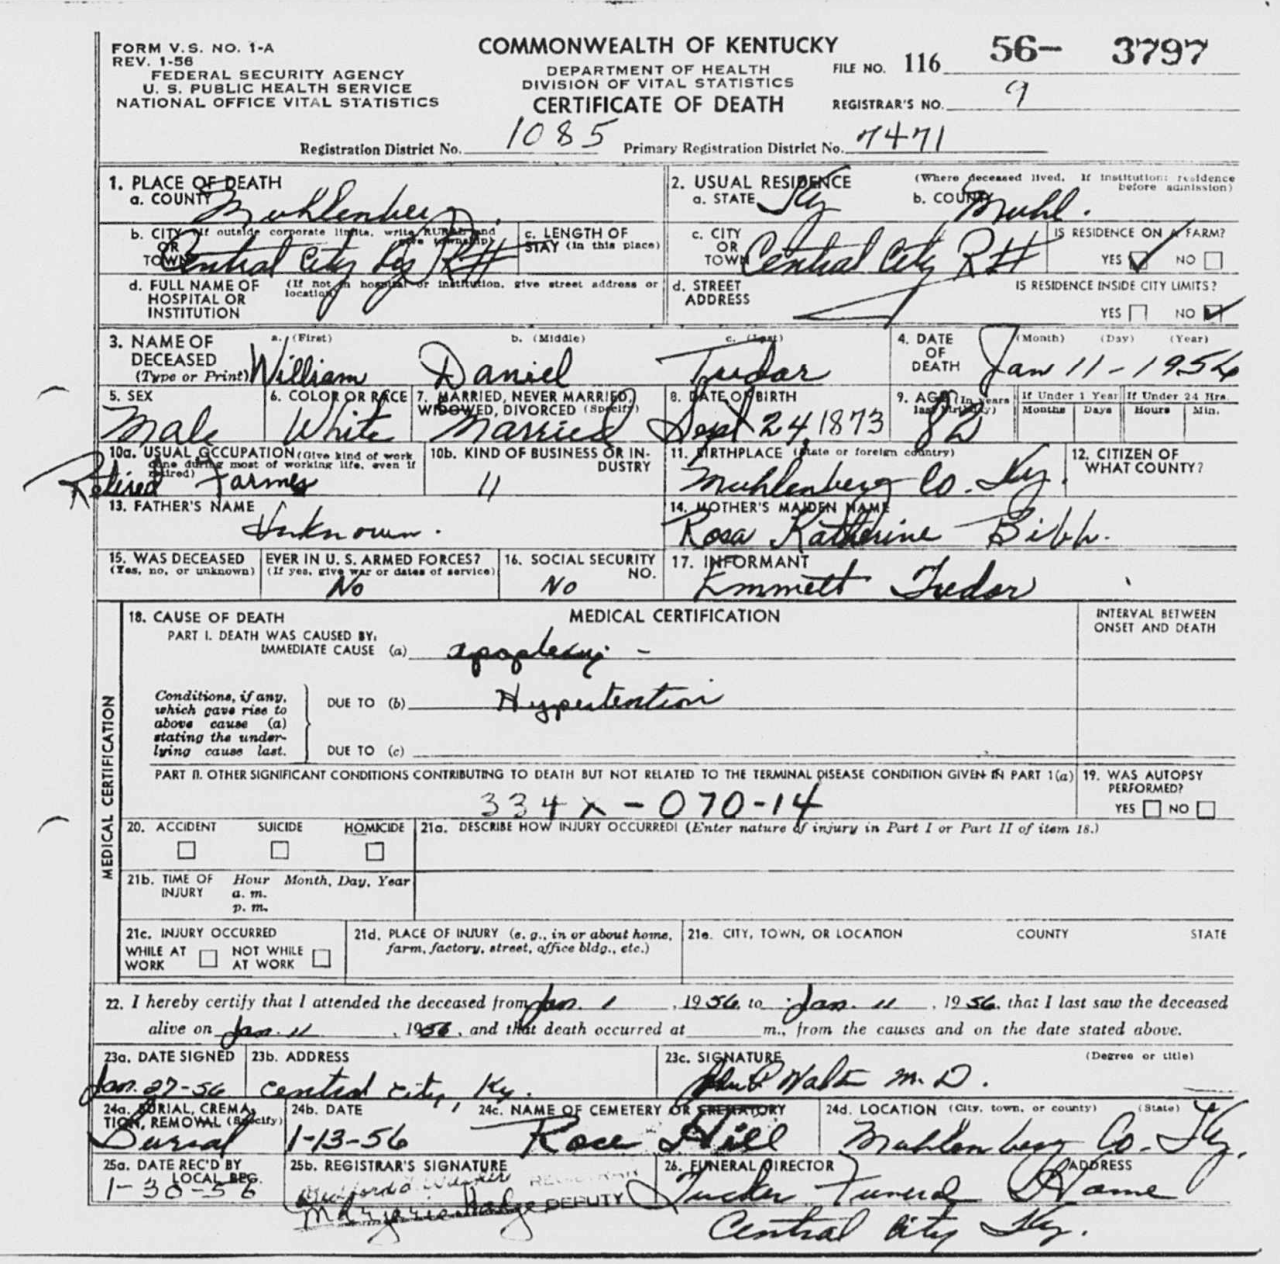 FORM V.S. NO. 1-A
REV. 1-56
FEDERAL SECURITY AGENCY
U. S. PUBLIC HEALTH SERVICE
NATIONAL OFFICE VITAL STATISTICS
COMMONWEALTH OF KENTUCKY
DEPARTMENT OF HEALTH
DIVISION OF VITAL STATISTICS
CERTIFICATE OF DEATH
FILE NO. 116 56- 3797
REGISTRAR'S NO. 9
Registration District No. 1085 Primary Registration District No. 7471
1. PLACE OF DEATH
a. COUNTY Muhlenberg
2. USUAL RESIDENCE (Where deceased lived, If institution: residence before admission)
a. STATE Ky b. COUNTY Muhl.
b. CITY (If outside corporate limits, write RURAL and give township)
OR
TOWN Central City Ky R#
c. LENGTH OF STAY (in this place)
c. CITY OR TOWN Central City R#
IS RESIDENCE ON A FARM?
YES ☑ NO ☐
d. FULL NAME OF HOSPITAL OR INSTITUTION (If not in hospital or institution, give street address or location)
d. STREET ADDRESS
IS RESIDENCE INSIDE CITY LIMITS?
YES ☐ NO ☑
3. NAME OF DECEASED (Type or Print)
a. (First) b. (Middle) c. (Last)
William Daniel Tudor
4. DATE OF DEATH (Month) (Day) (Year)
Jan 11-1956
5. SEX
Male
6. COLOR OR RACE
White
7. MARRIED, NEVER MARRIED, WIDOWED, DIVORCED (Specify)
Married
8. DATE OF BIRTH
Sept 24, 1873
9. AGE (In years last birthday)
82
If Under 1 Year If Under 24 Hrs.
Months Days Hours Min.
10a. USUAL OCCUPATION (Give kind of work done during most of working life, even if retired)
Retired Farmer
10b. KIND OF BUSINESS OR INDUSTRY
11
11. BIRTHPLACE (State or foreign country)
Muhlenberg Co. Ky.
12. CITIZEN OF WHAT COUNTY?
13. FATHER'S NAME
Unknown.
14. MOTHER'S MAIDEN NAME
Rosa Katherine Bibb.
15. WAS DECEASED EVER IN U. S. ARMED FORCES?
(Yes, no, or unknown) (If yes, give war or dates of service)
No
16. SOCIAL SECURITY NO.
No
17. INFORMANT
Emmett Tudor
MEDICAL CERTIFICATION
18. CAUSE OF DEATH MEDICAL CERTIFICATION
INTERVAL BETWEEN ONSET AND DEATH
PART I. DEATH WAS CAUSED BY:
IMMEDIATE CAUSE (a) apoplexy -
Conditions, if any, which gave rise to above cause (a) stating the underlying cause last.
DUE TO (b) Hypertention
DUE TO (c)
PART II. OTHER SIGNIFICANT CONDITIONS CONTRIBUTING TO DEATH BUT NOT RELATED TO THE TERMINAL DISEASE CONDITION GIVEN IN PART 1(a)
334X-070-14
19. WAS AUTOPSY PERFORMED?
YES ☐ NO ☐
20. ACCIDENT SUICIDE HOMICIDE
☐ ☐ ☐
21a. DESCRIBE HOW INJURY OCCURRED: (Enter nature of injury in Part I or Part II of item 18.)
21b. TIME OF INJURY Hour Month, Day, Year
a. m.
p. m.
21c. INJURY OCCURRED
WHILE AT WORK ☐ NOT WHILE AT WORK ☐
21d. PLACE OF INJURY (e. g., in or about home, farm, factory, street, office bldg., etc.)
21e. CITY, TOWN, OR LOCATION COUNTY STATE
22. I hereby certify that I attended the deceased from Jan. 1, 1956, to Jan. 11, 1956, that I last saw the deceased
alive on Jan. 11, 1956, and that death occurred at m., from the causes and on the date stated above.
23a. DATE SIGNED
Jan. 27-56
23b. ADDRESS
Central City, Ky.
23c. SIGNATURE (Degree or title)
John P Walton M. D.
24a. BURIAL, CREMATION, REMOVAL (Specify)
Burial
24b. DATE
1-13-56
24c. NAME OF CEMETERY OR CREMATORY
Rose Hill
24d. LOCATION (City, town, or county) (State)
Muhlenberg Co. Ky.
25a. DATE REC'D BY LOCAL REG.
1-30-56
25b. REGISTRAR'S SIGNATURE
REGISTRAR
Marjorie DEPUTY
26. FUNERAL DIRECTOR ADDRESS
Tucker Funeral Home
Central City Ky.